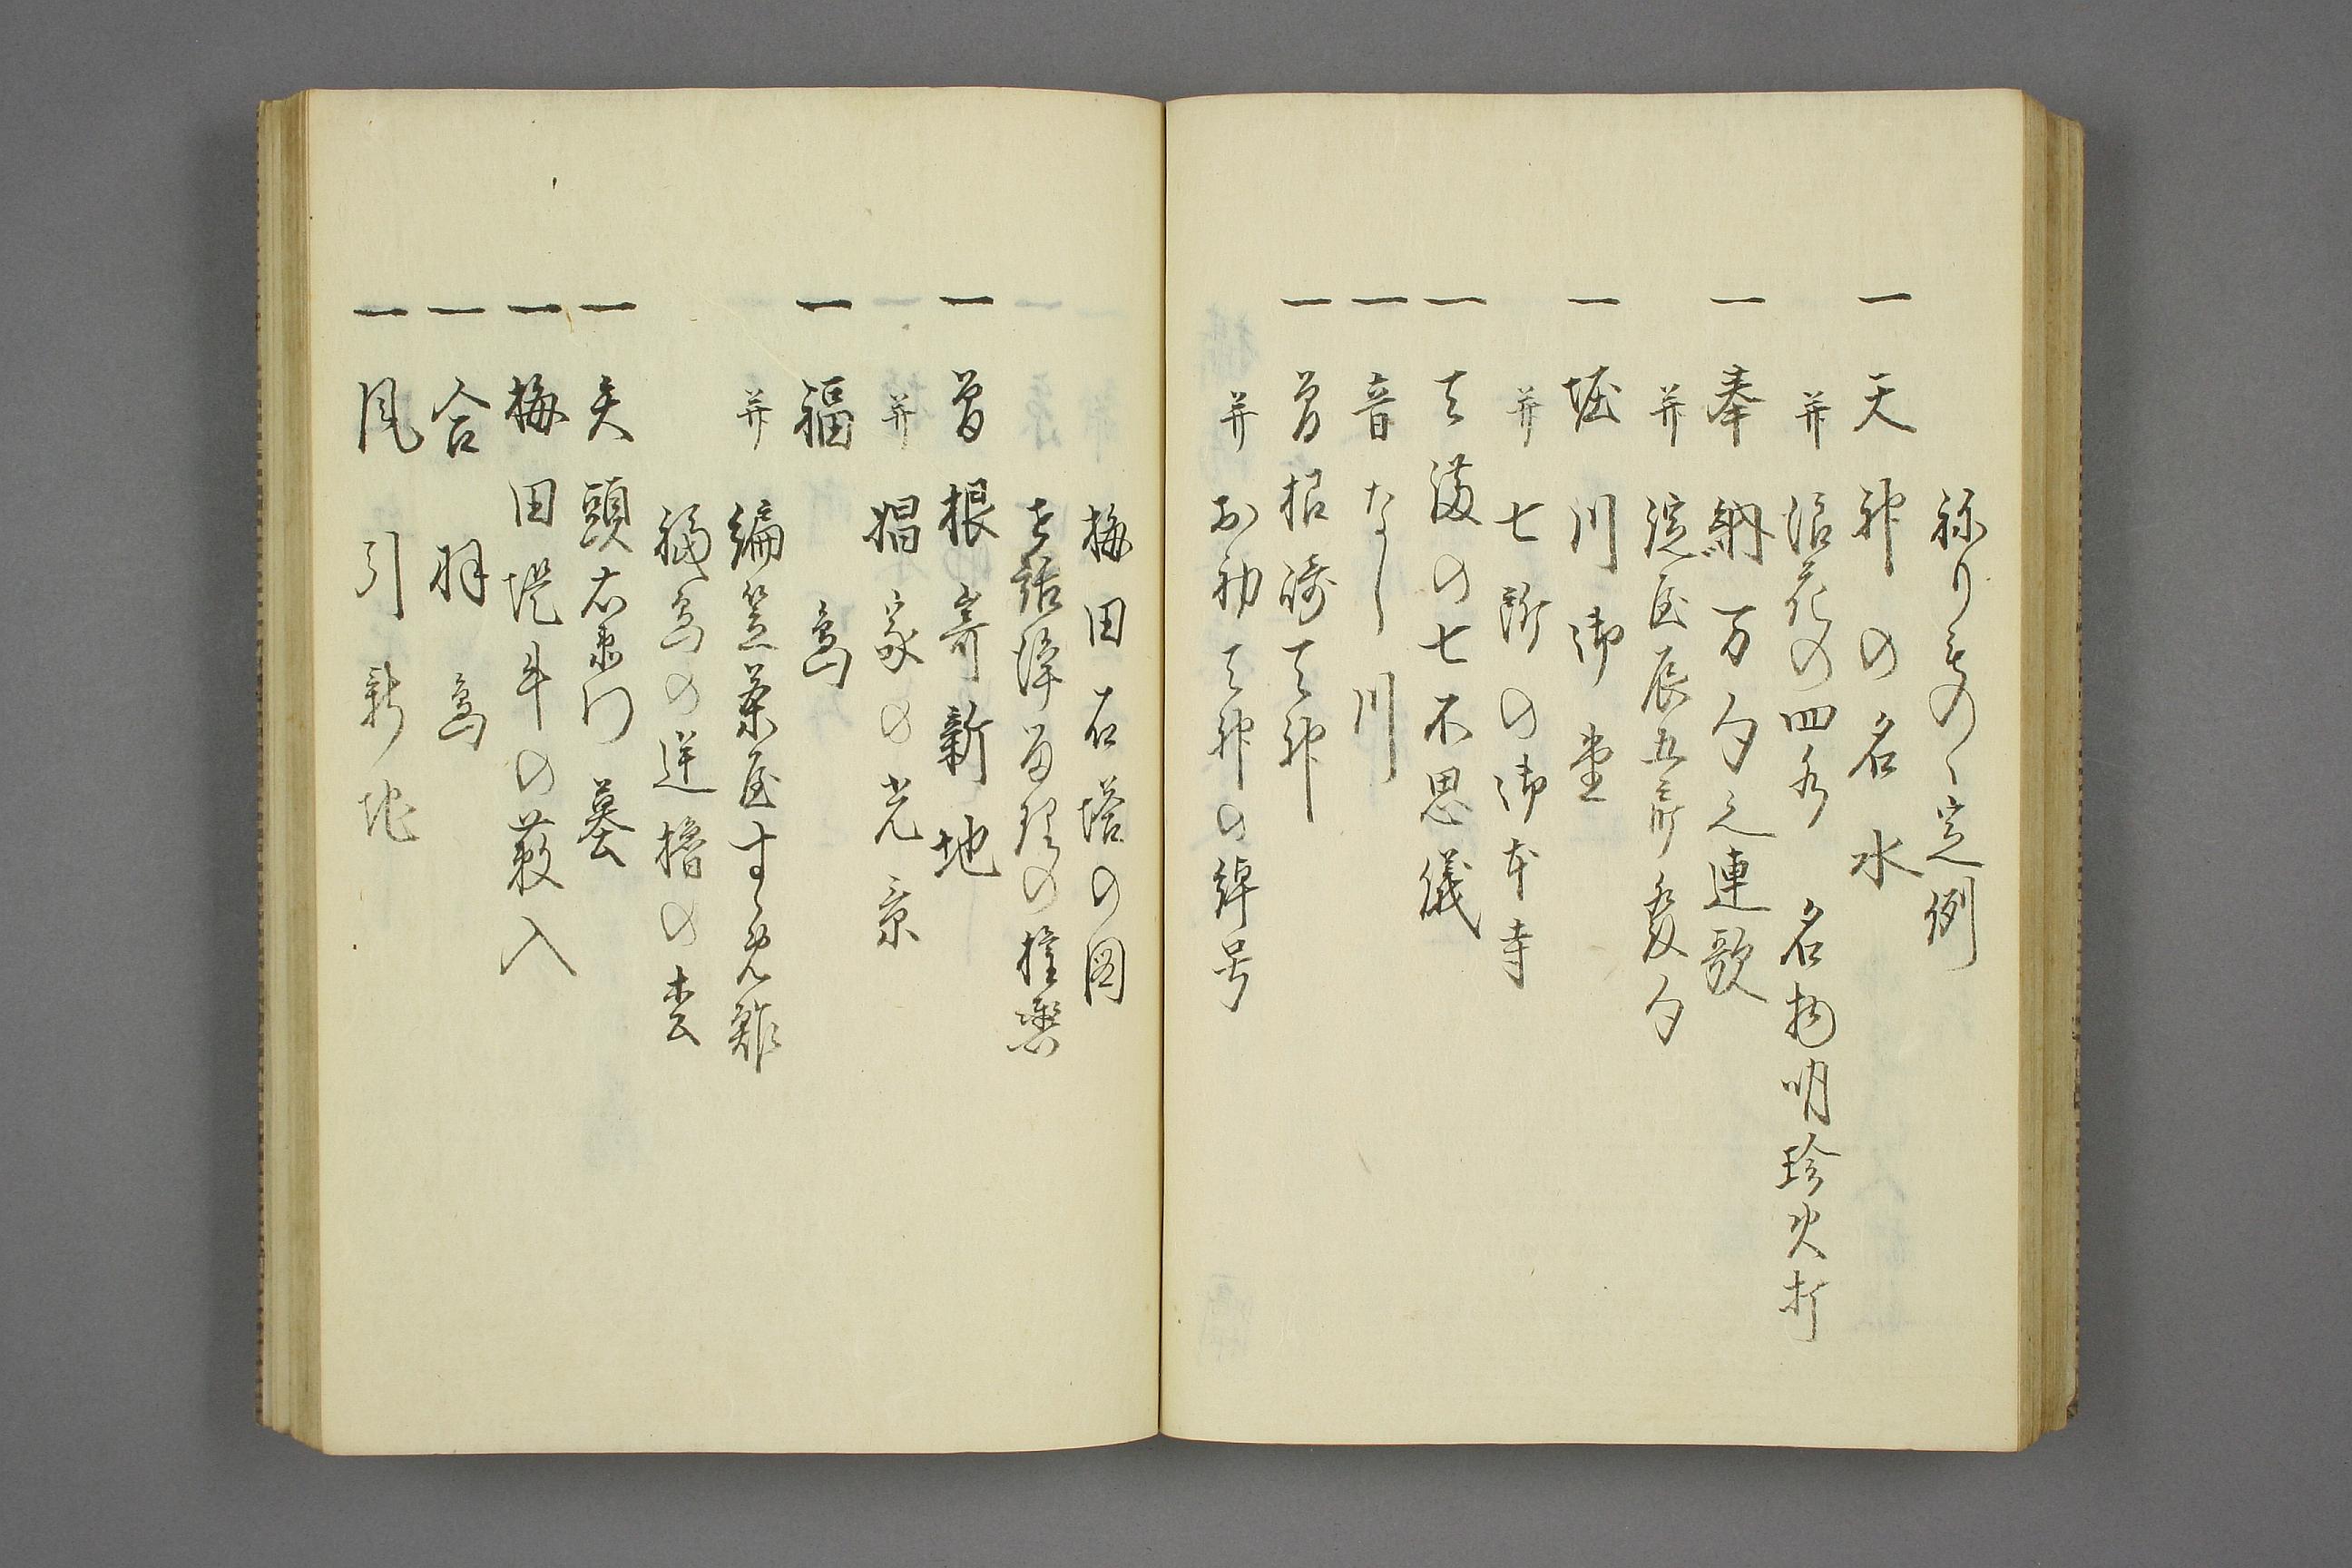 ねりものゝ定例
一 天神の名水
并 浪花の四名水 名物明珍火打
一 奉納万句之連歌
并 淀屋辰五郎発句
一 堀川御堂
并 七所の御本寺
一 天満の七不思儀
一 音なし川
一 曽根崎天神
并 お初天神の綽号
梅田石塔の図
浄留理の
一 曽根寄新地
并 娼家の光景
一 福島
并 編笠茶屋すゞめ鮓
福島の逆櫓の松
一 矢頭右衛門墓
一 梅田堤牛の藪入
一 合羽島
一 風引新地